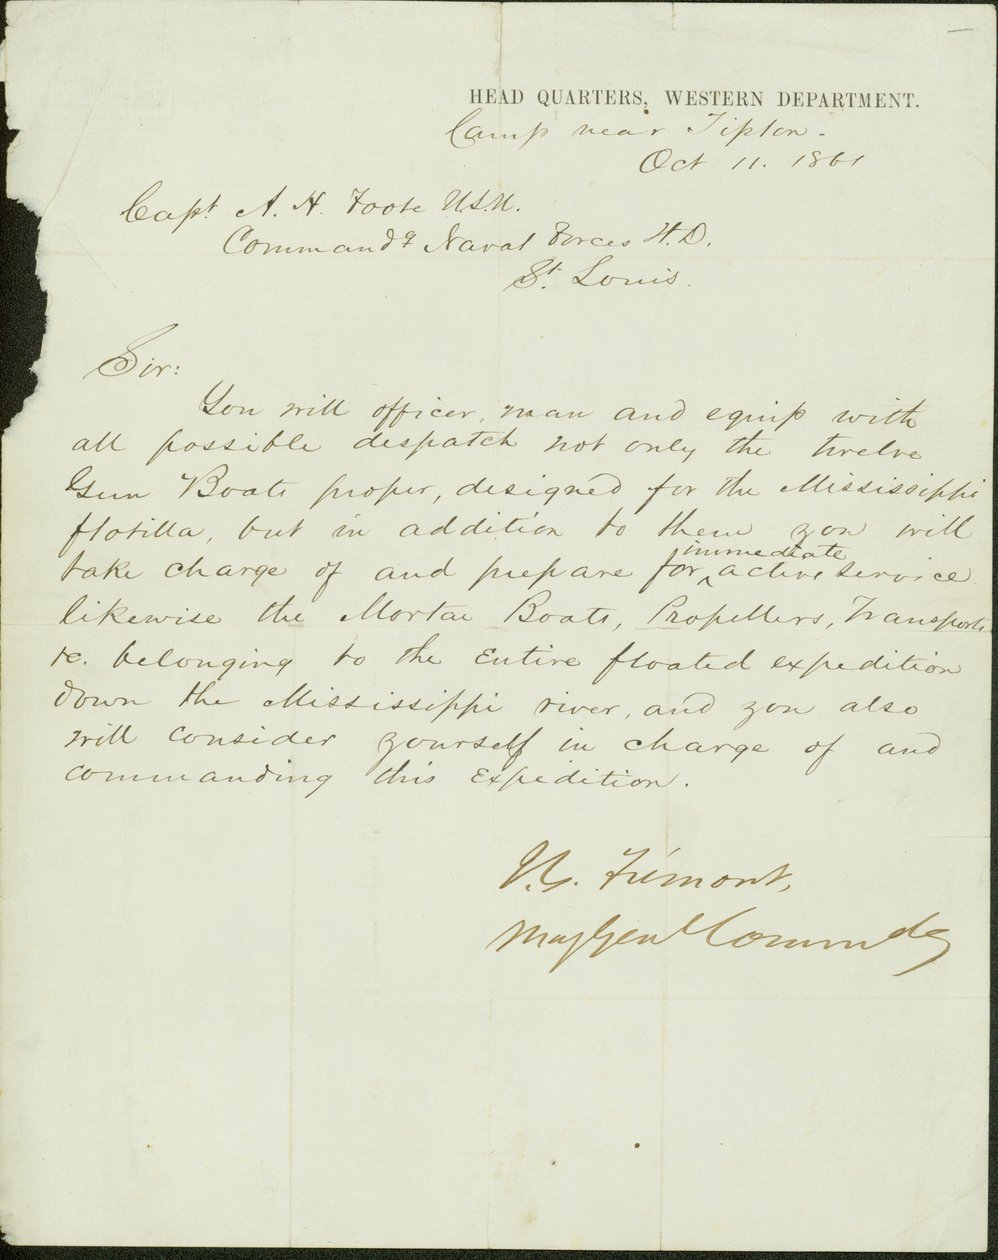 HEAD QUARTERS, WESTERN DEPARTMENT.
Camp near Tipton.
Oct 11. 1861
Capt A. H. Foote U.S.N.
Commandg Naval Forces W.D.
St. Louis.
Sir:
You will officer, man and equip with
all possible despatch not only the twelve
Gun Boats proper, designed for the Mississippi
flotilla, but in addition to them you will
take charge of and prepare for ^immediate active service
likewise the Mortar Boats, Propellers, Transports
&c. belonging to the entire floated expedition
down the Mississippi river, and you also
will consider yourself in charge of and
commanding this Expedition.
J. C. Frémont,
Maj Genl Commdg